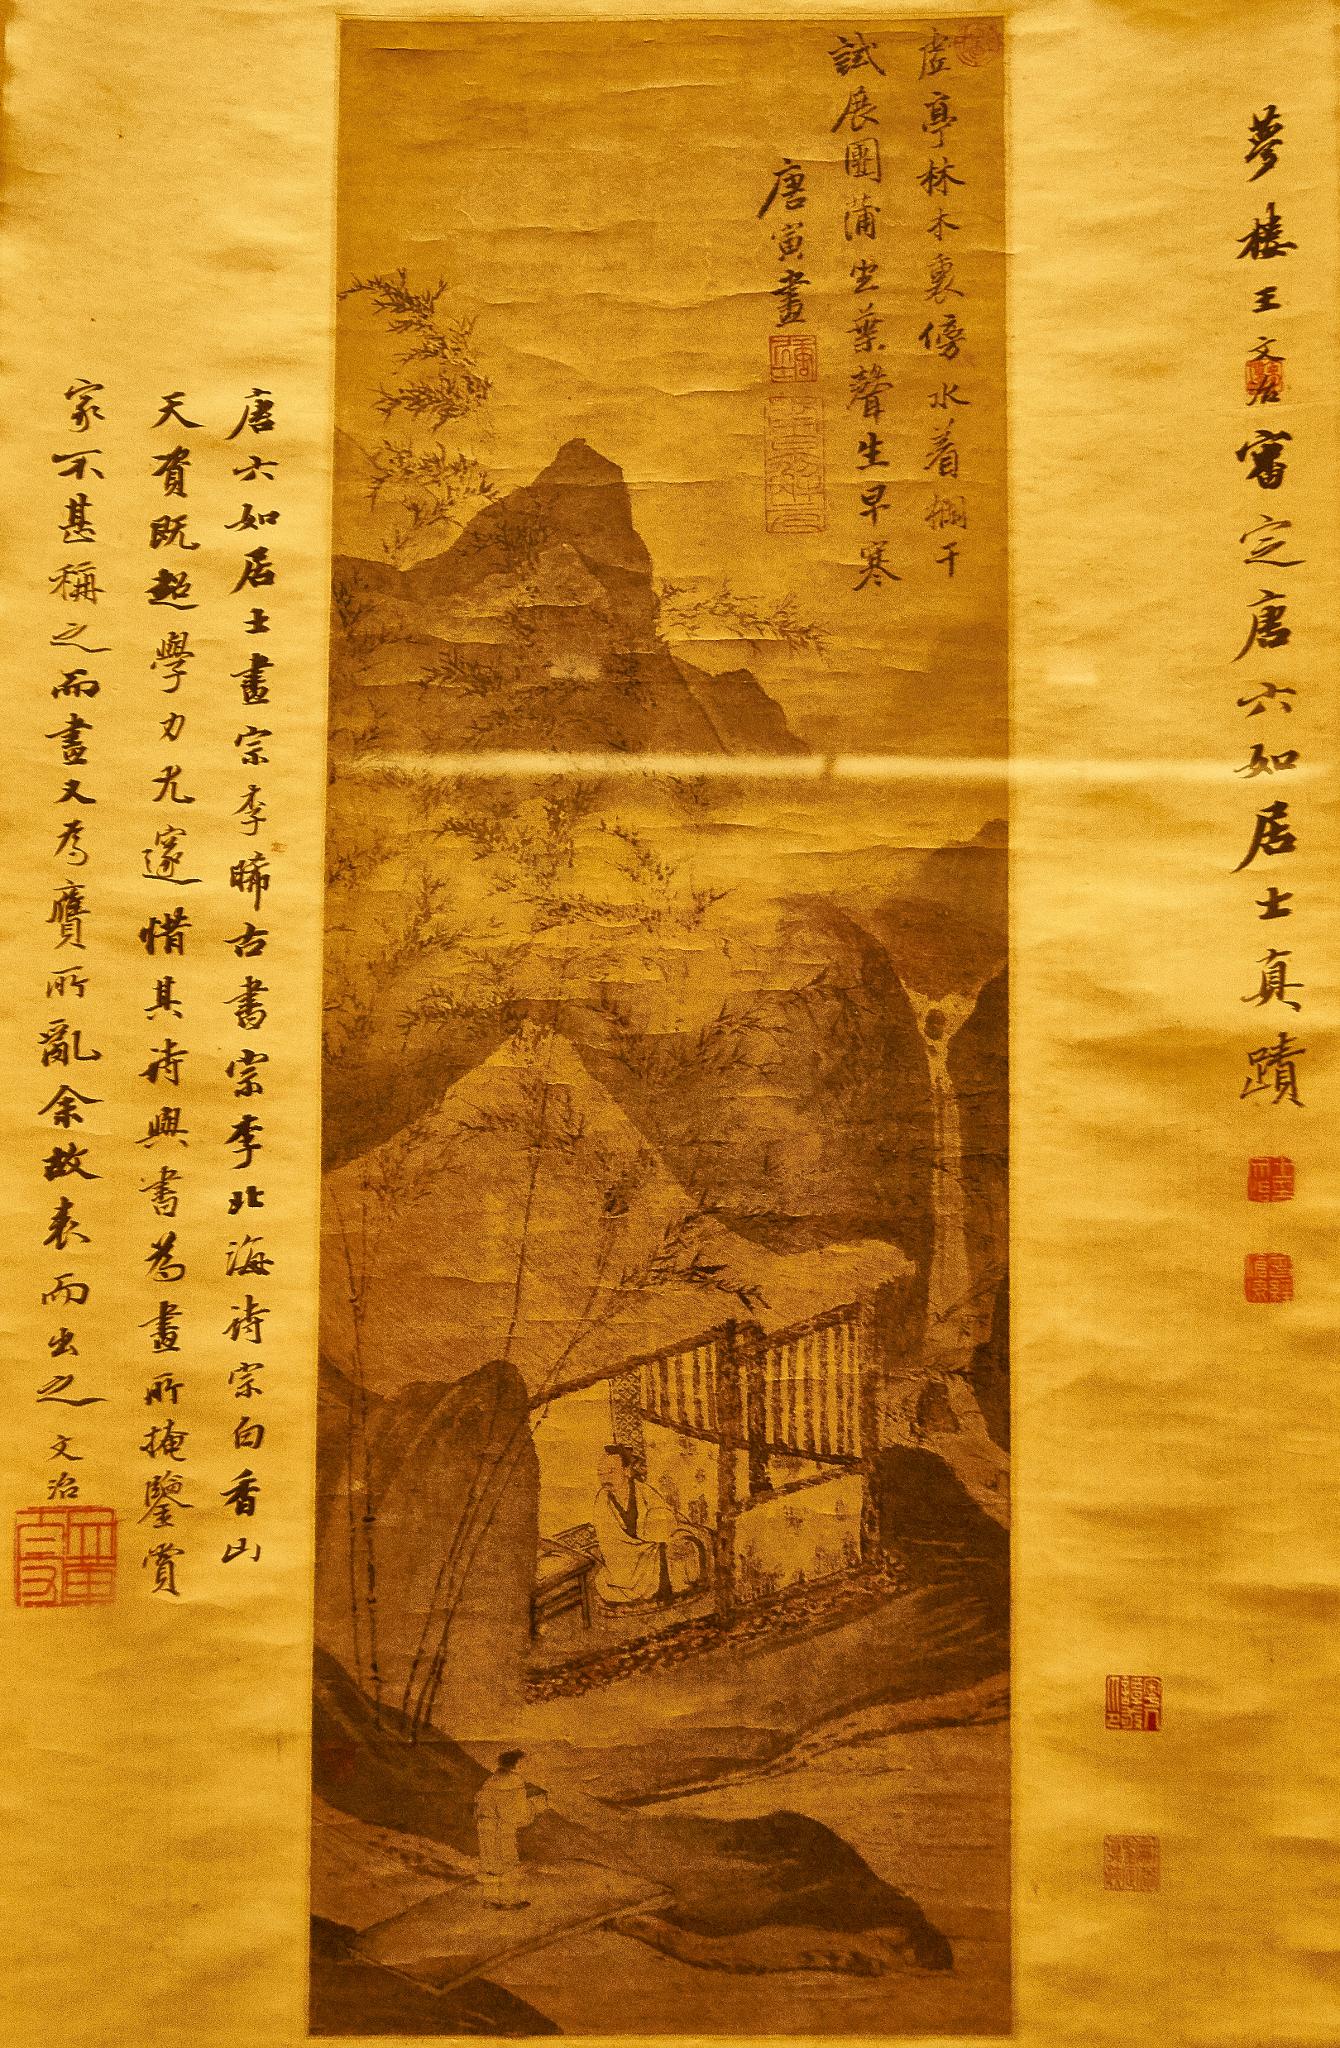 夢樓王文治審定唐六如居士真蹟
虛亭林木裏傍水着欄干
試展團蒲坐葉聲生早寒
唐寅畫
唐六如居士畫宗李晞古書宗李北海詩宗白香山
天資既超學力尤邃惜其詩與書為畫所掩鑒賞
家不甚稱之而畫又為贗所亂余故表而出之文治